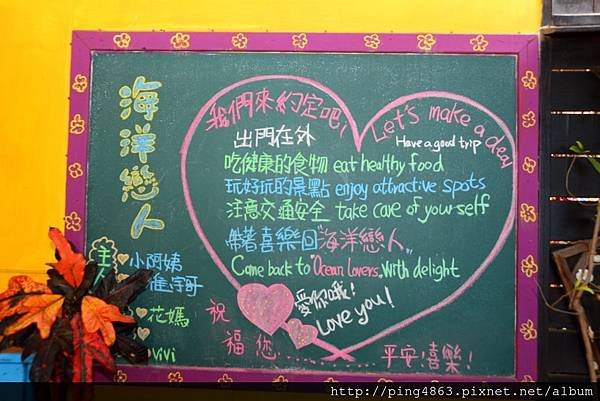 海洋戀人
我們來約定吧!
Let's make a deal
出門在外
Have a good trip
吃健康的食物 eat healthy food
玩好玩的景點 enjoy attractive spots
注意交通安全 take care of yourself
帶著喜樂回"海洋戀人"
Came back to "Ocean Lovers" With delight
愛你哦!
Love you!
主人
小阿姨
宇哥
花媽
vivi
祝福您......平安!喜樂!
http://ping4863.pixnet.net/album